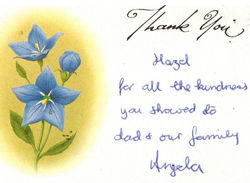 Thank You
Hazel
for all the kindness
you showed to
dad & our family
Angela